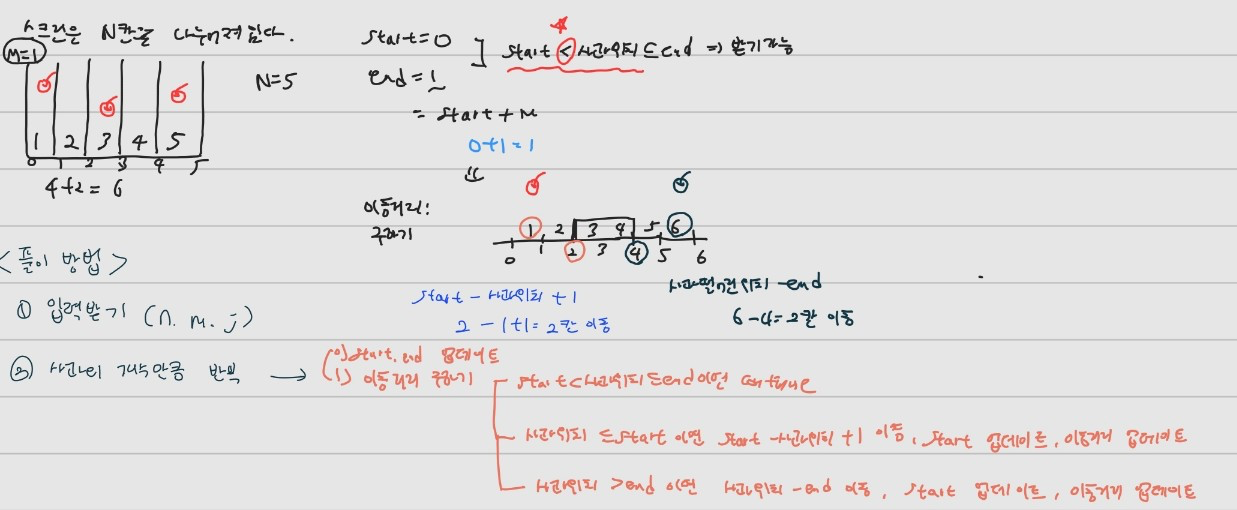 스크린은 N칸으로 나누어져 있다.
M=1
1 2 3 4 5
0 1 2 3 4 5
4+2=6
N=5
start=0
end=1
= start+M
0+1=1
start < 사과위치 ≤ end => 받기가능
이동거리:
구하기
1 2 3 4 5 6
0 1 2 3 4 5 6
start - 사과위치 +1
2-1+1=2칸 이동
사과떨어진위치 -end
6-4=2칸 이동
<풀이 방법>
① 입력받기 (n. m. j)
② 사과의 개수만큼 반복 →
(0) start, end 업데이트
(1) 이동거리 구하기
start<사과위치≤end이면 continue
사과위치 ≤start 이면 start -사과위치 +1 이동, start 업데이트, 이동거리 업데이트
사과위치 >end 이면 사과위치 -end 이동, start 업데이트, 이동거리 업데이트